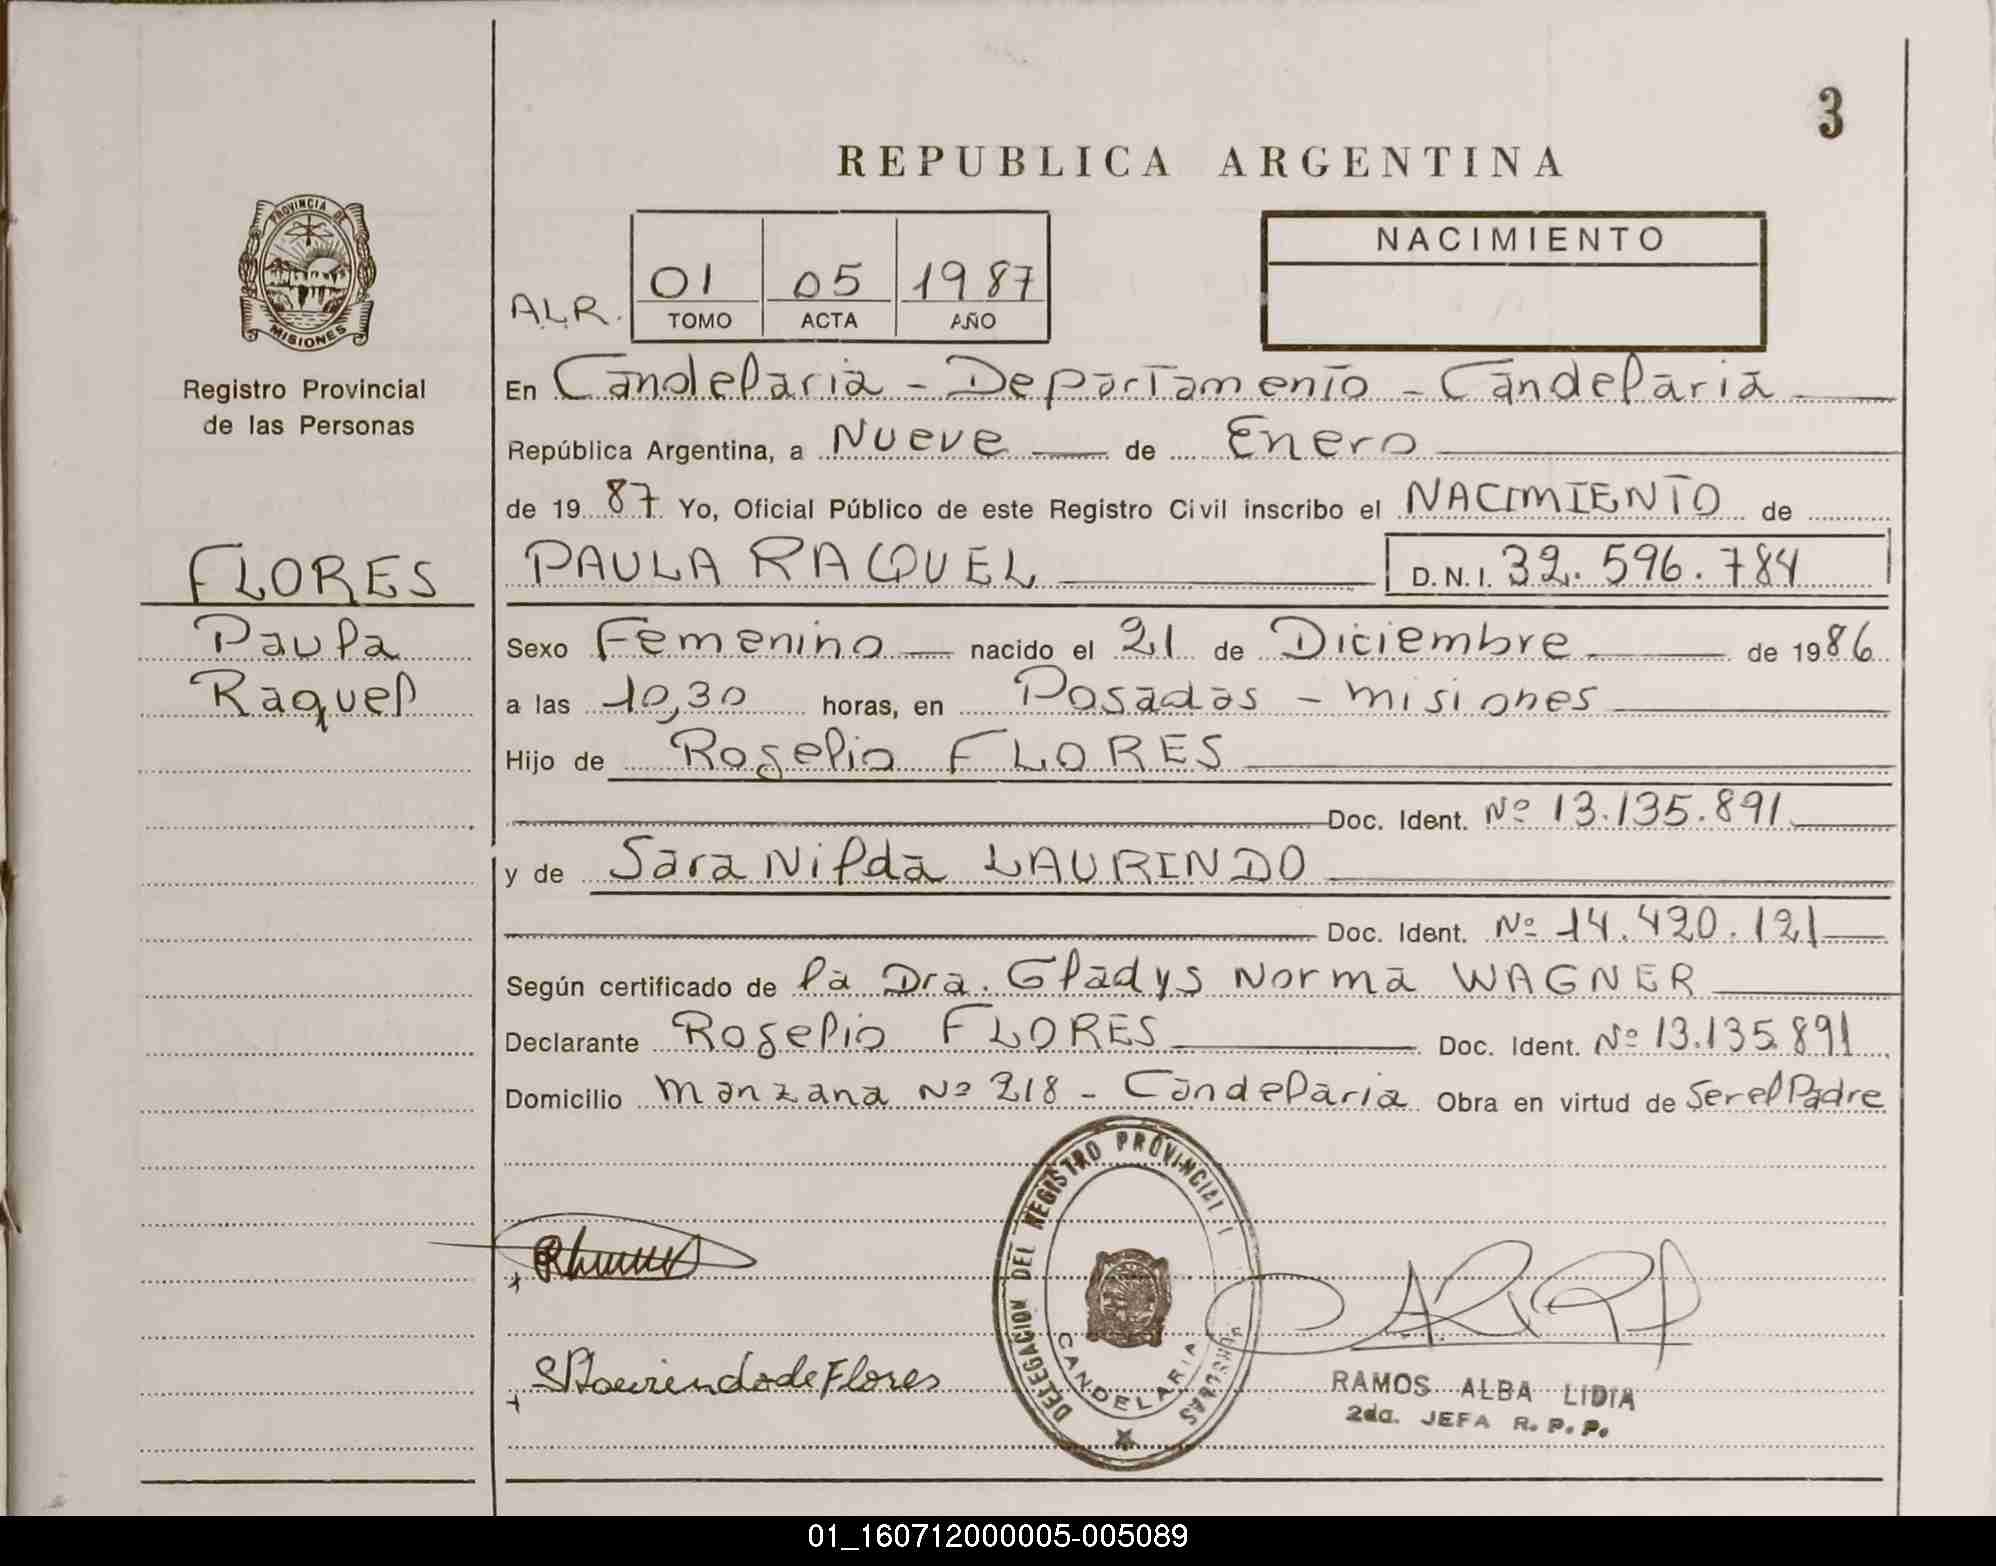 3
REPUBLICA ARGENTINA
PROVINCIA DE
MISIONES
Registro Provincial
de las Personas
NACIMIENTO
ALR.
01 05 1987
TOMO ACTA AÑO
En Candelaria - Departamento - Candelaria
República Argentina, a Nueve de Enero
de 1987 Yo, Oficial Público de este Registro Civil inscribo el NACIMIENTO de
FLORES
Paula
Raquel
PAULA RAQUEL D.N.I. 32.596.784
Sexo Femenino nacido el 21 de Diciembre de 1986
a las 10,30 horas, en Posadas - Misiones
Hijo de Rogelio FLORES
Doc. Ident. Nº 13.135.891
y de Sara Nilda LAURINDO
Doc. Ident. Nº 14.420.121
Según certificado de la Dra. Gladys Norma WAGNER
Declarante Rogelio FLORES Doc. Ident. Nº 13.135.891
Domicilio Manzana Nº 218 - Candelaria Obra en virtud de Ser el Padre
DELEGACION DEL REGISTRO PROVINCIAL
CANDELARIA
de Flores
RAMOS ALBA LIDIA
2da. JEFA R.P.P.
01_160712000005-005089